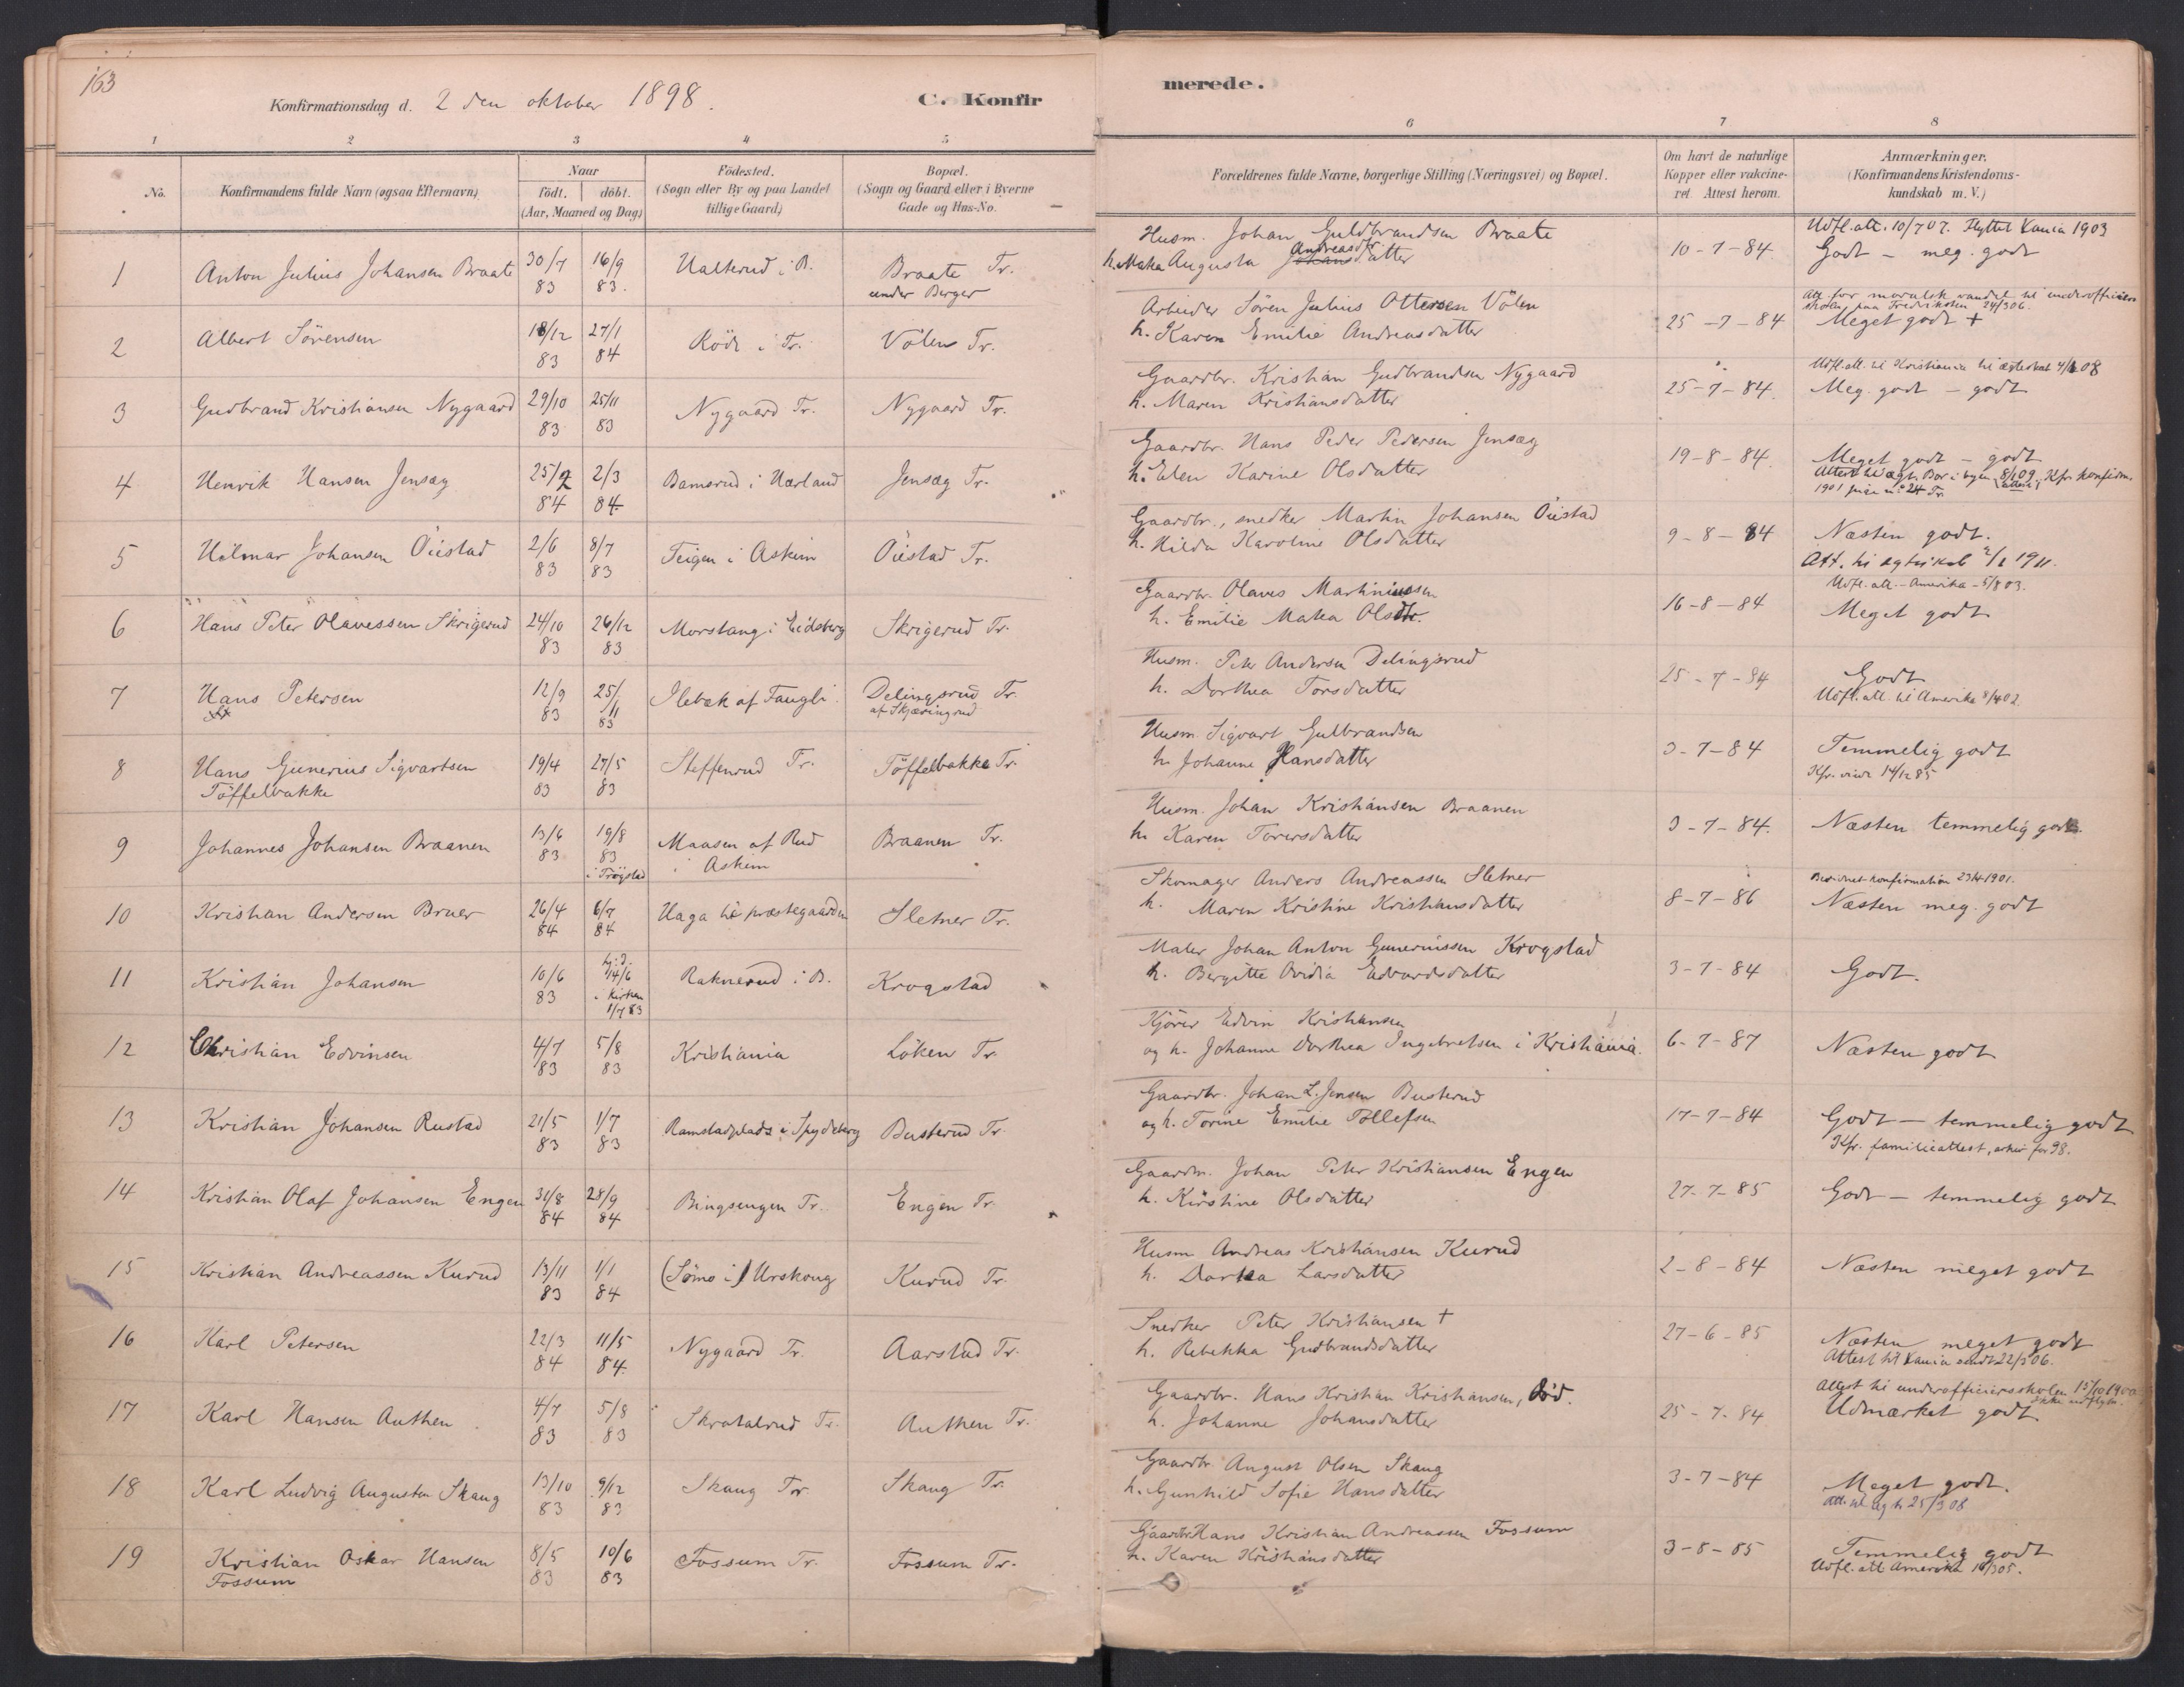 163
Konfirmationsdag d. 2 den oktober 1898.
C. Konfirmerede.
1 2 3 4 5 6 7 8
No.
Konfirmandens fulde Navn (ogsaa Efternavn)
Naar
födt. döbt.
(Aar, Maaned og Dag)
Födested.
(Sogn eller By og paa Landet
tillige Gaard)
Bopæl.
(Sogn og Gaard eller i Byerne
Gade og Hus-No.
Forældrenes fulde Navne, borgerlige Stilling (Næringsvei) og Bopæl.
Om havt de naturlige
Kopper eller vakcine-
ret. Attest herom.
Anmærkninger.
(Konfirmandens Kristendoms-
kundskab m. V.)
1 Anton Julius Johansen Braate 30/7 83 16/9 83. i B. Braate Tr.
under Berger
Husm. Johan Guldbrandsen Braate
h. Maka Augusta Johansdatter Andreasdtr.
10-7-84.
Udfl.att. 10/7 07. Flyttet Kania 1903
Godt - meg. godt
2 Albert Sörensen 18/12 83 27/1 84 i Tr. Völen Tr.
Arbeider Sören Julius Ottersen Völen
h. Karen Emilie Andreasdatter
25-7-84
Att. for moralsk vandel til underofficiers
skolen paa Fredriksten 24/3 06.
Meget godt +
3 Gudbrand Kristiansen Nygaard 29/10 83 25/11 83 Nygaard Tr. Nygaard Tr.
Gaardbr. Kristian Gudbrandsen Nygaard
h. Maren Kristiansdatter
25-7-84.
Udfl.att. til Kristiania til ægteskab 4/1 08
Meg. godt - godt
4 Henrik Hansen Jensæg 25/2 84 2/3 84. Bamsrud i Hærland Jensæg Tr.
Gaardbr. Hans Peder Pedersen Jensæg
h. Elen Karine Olsdatter
19-8-84.
Meget godt - godt
5 Hilmar Johansen Öiestad 2/6 83 8/7 83 Teigen i Askim Öiestad Tr.
Gaardbr., snedker Martin Johansen Öiestad
h. Hilda Karoline Olsdatter
9-8-84
Næsten godt.
Att. til egteskab 2/2 1911.
6 Hans Peter Olavessen Skrigerud 24/10 83 26/12 83 Morstang i Eidsberg Skrigerud Tr.
Gaardbr. Olaves Martiniussen
h. Emilie Matea Olsdtr.
16-8-84
Udfl. att. - Amerika - 5/8 03.
Meget godt
7 Hans Petersen 12/9 83 25/11 83 Ilebæk af Faugli Delingsrud Tr.
af Skjæringrud
Husm. Peter Andersen Delingsrud
h. Dorthea Torsdatter
25-7-84
Godt
Udfl. att. til Amerika 8/4 02.
8 Hans Gunerius Sigvartsen
Töffelbakke
19/4 83 27/5 83 Steffenrud Tr. Töffelbakke Tr.
Husm. Sigvart Gulbrandsen
h. Johanne Hansdatter
3-7-84
Temmelig godt
Kfr. 14/12 85
9 Johannes Johansen Braanen 13/6 83 19/8 83 i Trögstad Maasen af Rud
i Askim
Braanen Tr.
Husm. Johan Kristiansen Braanen
h. Karen Torersdatter
3-7-84.
Næsten temmelig godt.
10 Kristian Andersen Bruer 26/4 84 6/7 84 Haga til præstegaarden Sletner Tr.
Skomager Anders Andreassen Sletner
h. Maren Kristine Kristiansdatter
8-7-86
Bevidnet konfirmation 23/4 1901.
Næsten meg. godt
11 Kristian Johansen 10/6 83 hj.d. 14/6
i kirken
1/7 83
Raknerud i B. Krogstad
Maler Johan Anton Gunerinssen Krogstad
h. Bergitte Ovidia Edvardsdatter
3-7-84
Godt.
12 Christian Edvinsen 4/7 83 5/8 83 Kristiania Löken Tr.
Kjörer Edvin Kristiansen
og h. Johanne Dorthea Ingebretsen i Kristiania.
6-7-87
Næsten godt
13 Kristian Johansen Rustad 21/5 83 1/7 83 Ramstadplads i Spydeberg Busterud Tr.
Gaardbr. Johan L. Jensen Busterud
og h. Torine Emilie Tollefsen
17-7-84
Godt - temmelig godt
Kfr. familieattest, arkiv for 98.
14 Kristian Olaf Johansen Engen 31/8 84 28/9 84 Bingsengen Tr. Engen Tr.
Gaardm. Johan Peter Kristiansen Engen
h. Kirstine Olsdatter
27-7-85
Godt - temmelig godt
15 Kristian Andreassen Kurud 13/11 83 1/1 84 (Sömo i) Urskoug Kurud Tr.
Husm Andreas Kristiansen Kurud
h. Dorthea Larsdatter
2-8-84
Næsten meget godt
16 Karl Petersen 22/3 84 11/5 84. Nygaard Tr. Aarstad Tr.
Snedker Peter Kristiansen †
h. Rebekka Gudbrandsdatter
27-6-85
Næsten meget godt
Attest til Kania sendt 22/3 06.
17 Karl Hansen Authen 4/7 83 5/8 83 Skratalrud Tr. Authen Tr.
Gaardbr. Hans Kristian Kristiansen, död.
h. Johanne Johansdatter
25-7-84
Attest til underofficiersskolen 15/10 1900
Udmærket godt.
18 Karl Ludvig Augustsen Skaug 13/10 83 9/12 83 Skaug Tr. Skaug Tr.
Gaardbr. August Olsen Skaug
h. Gunhild Sofie Hansdatter
3-7-84
Meget godt.
Att. til egt. 25/3 08
19 Kristian Oskar Hansen
Fossum
8/5 83 10/6 83 Fossum Tr. Fossum Tr.
Gaardbr. Hans Kristian Andreassen Fossum
h. Karen Kristiansdatter
3-8-85
Temmelig godt
Udfl. att. Amerika 16/3 05.